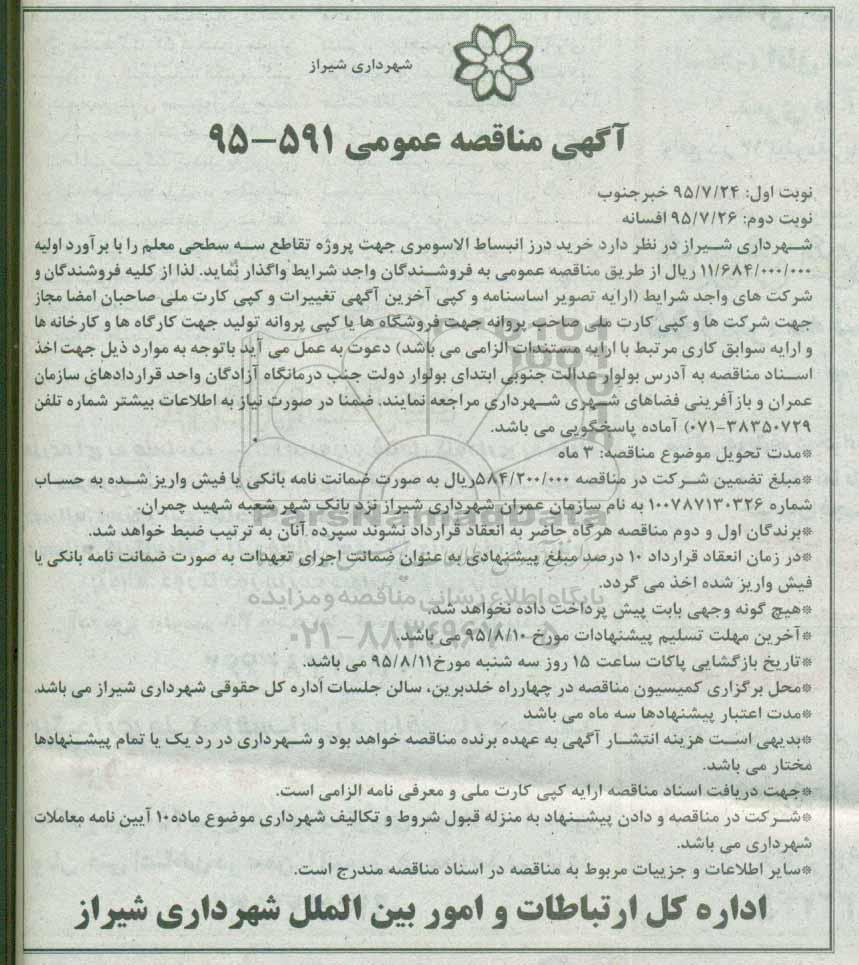 شهرداری شیراز
آگهی مناقصه عمومی ۵۹۱-۹۵
نوبت اول: ۹۵/۷/۲۴ خبرجنوب
نوبت دوم: ۹۵/۷/۲۶ افسانه
شهرداری شیراز در نظر دارد خرید درز انبساط الاسومری جهت پروژه تقاطع سه سطحی معلم را با برآورد اولیه
۱۱/۶۸۴/۰۰۰/۰۰۰ ریال از طریق مناقصه عمومی به فروشندگان واجد شرایط واگذار نماید. لذا از کلیه فروشندگان و
شرکت های واجد شرایط (ارایه تصویر اساسنامه و کپی آخرین آگهی تغییرات و کپی کارت ملی صاحبان امضا مجاز
جهت شرکت ها و کپی کارت ملی صاحب پروانه جهت فروشگاه ها یا کپی پروانه تولید جهت کارگاه ها و کارخانه ها
و ارایه سوابق کاری مرتبط با ارایه مستندات الزامی می باشد) دعوت به عمل می آید باتوجه به موارد ذیل جهت اخذ
اسناد مناقصه به آدرس بولوار عدالت جنوبی ابتدای بولوار دولت جنب درمانگاه آزادگان واحد قراردادهای سازمان
عمران و بازآفرینی فضاهای شهری شهرداری مراجعه نمایند. ضمنا در صورت نیاز به اطلاعات بیشتر شماره تلفن
۳۸۳۵۰۷۲۹-۰۷۱) آماده پاسخگویی می باشد.
*مدت تحویل موضوع مناقصه: ۳ ماه
*مبلغ تضمین شرکت در مناقصه ۵۸۴/۲۰۰/۰۰۰ریال به صورت ضمانت نامه بانکی یا فیش واریز شده به حساب
شماره ۱۰۰۷۸۷۱۳۰۳۲۶ به نام سازمان عمران شهرداری شیراز نزد بانک شهر شعبه شهید چمران.
*برندگان اول و دوم مناقصه هرگاه حاضر به انعقاد قرارداد نشوند سپرده آنان به ترتیب ضبط خواهد شد.
*در زمان انعقاد قرارداد ۱۰ درصد مبلغ پیشنهادی به عنوان ضمانت اجرای تعهدات به صورت ضمانت نامه بانکی یا
فیش واریز شده اخذ می گردد.
*هیچ گونه وجهی بابت پیش پرداخت داده نخواهد شد.
*آخرین مهلت تسلیم پیشنهادات مورخ ۹۵/۸/۱۰ می باشد.
*تاریخ بازگشایی پاکات ساعت ۱۵ روز سه شنبه مورخ۹۵/۸/۱۱ می باشد.
*محل برگزاری کمیسیون مناقصه در چهارراه خلدبرین، سالن جلسات اداره کل حقوقی شهرداری شیراز می باشد.
*مدت اعتبار پیشنهادها سه ماه می باشد
*بدیهی است هزینه انتشار آگهی به عهده برنده مناقصه خواهد بود و شهرداری در رد یک یا تمام پیشنهادها
مختار می باشد.
*جهت دریافت اسناد مناقصه ارایه کپی کارت ملی و معرفی نامه الزامی است.
*شرکت در مناقصه و دادن پیشنهاد به منزله قبول شروط و تکالیف شهرداری موضوع ماده۱۰ آیین نامه معاملات
شهرداری می باشد.
*سایر اطلاعات و جزییات مربوط به مناقصه در اسناد مناقصه مندرج است.
اداره کل ارتباطات و امور بین الملل شهرداری شیراز
ParsNamadData
پایگاه اطلاع رسانی مناقصه و مزایده